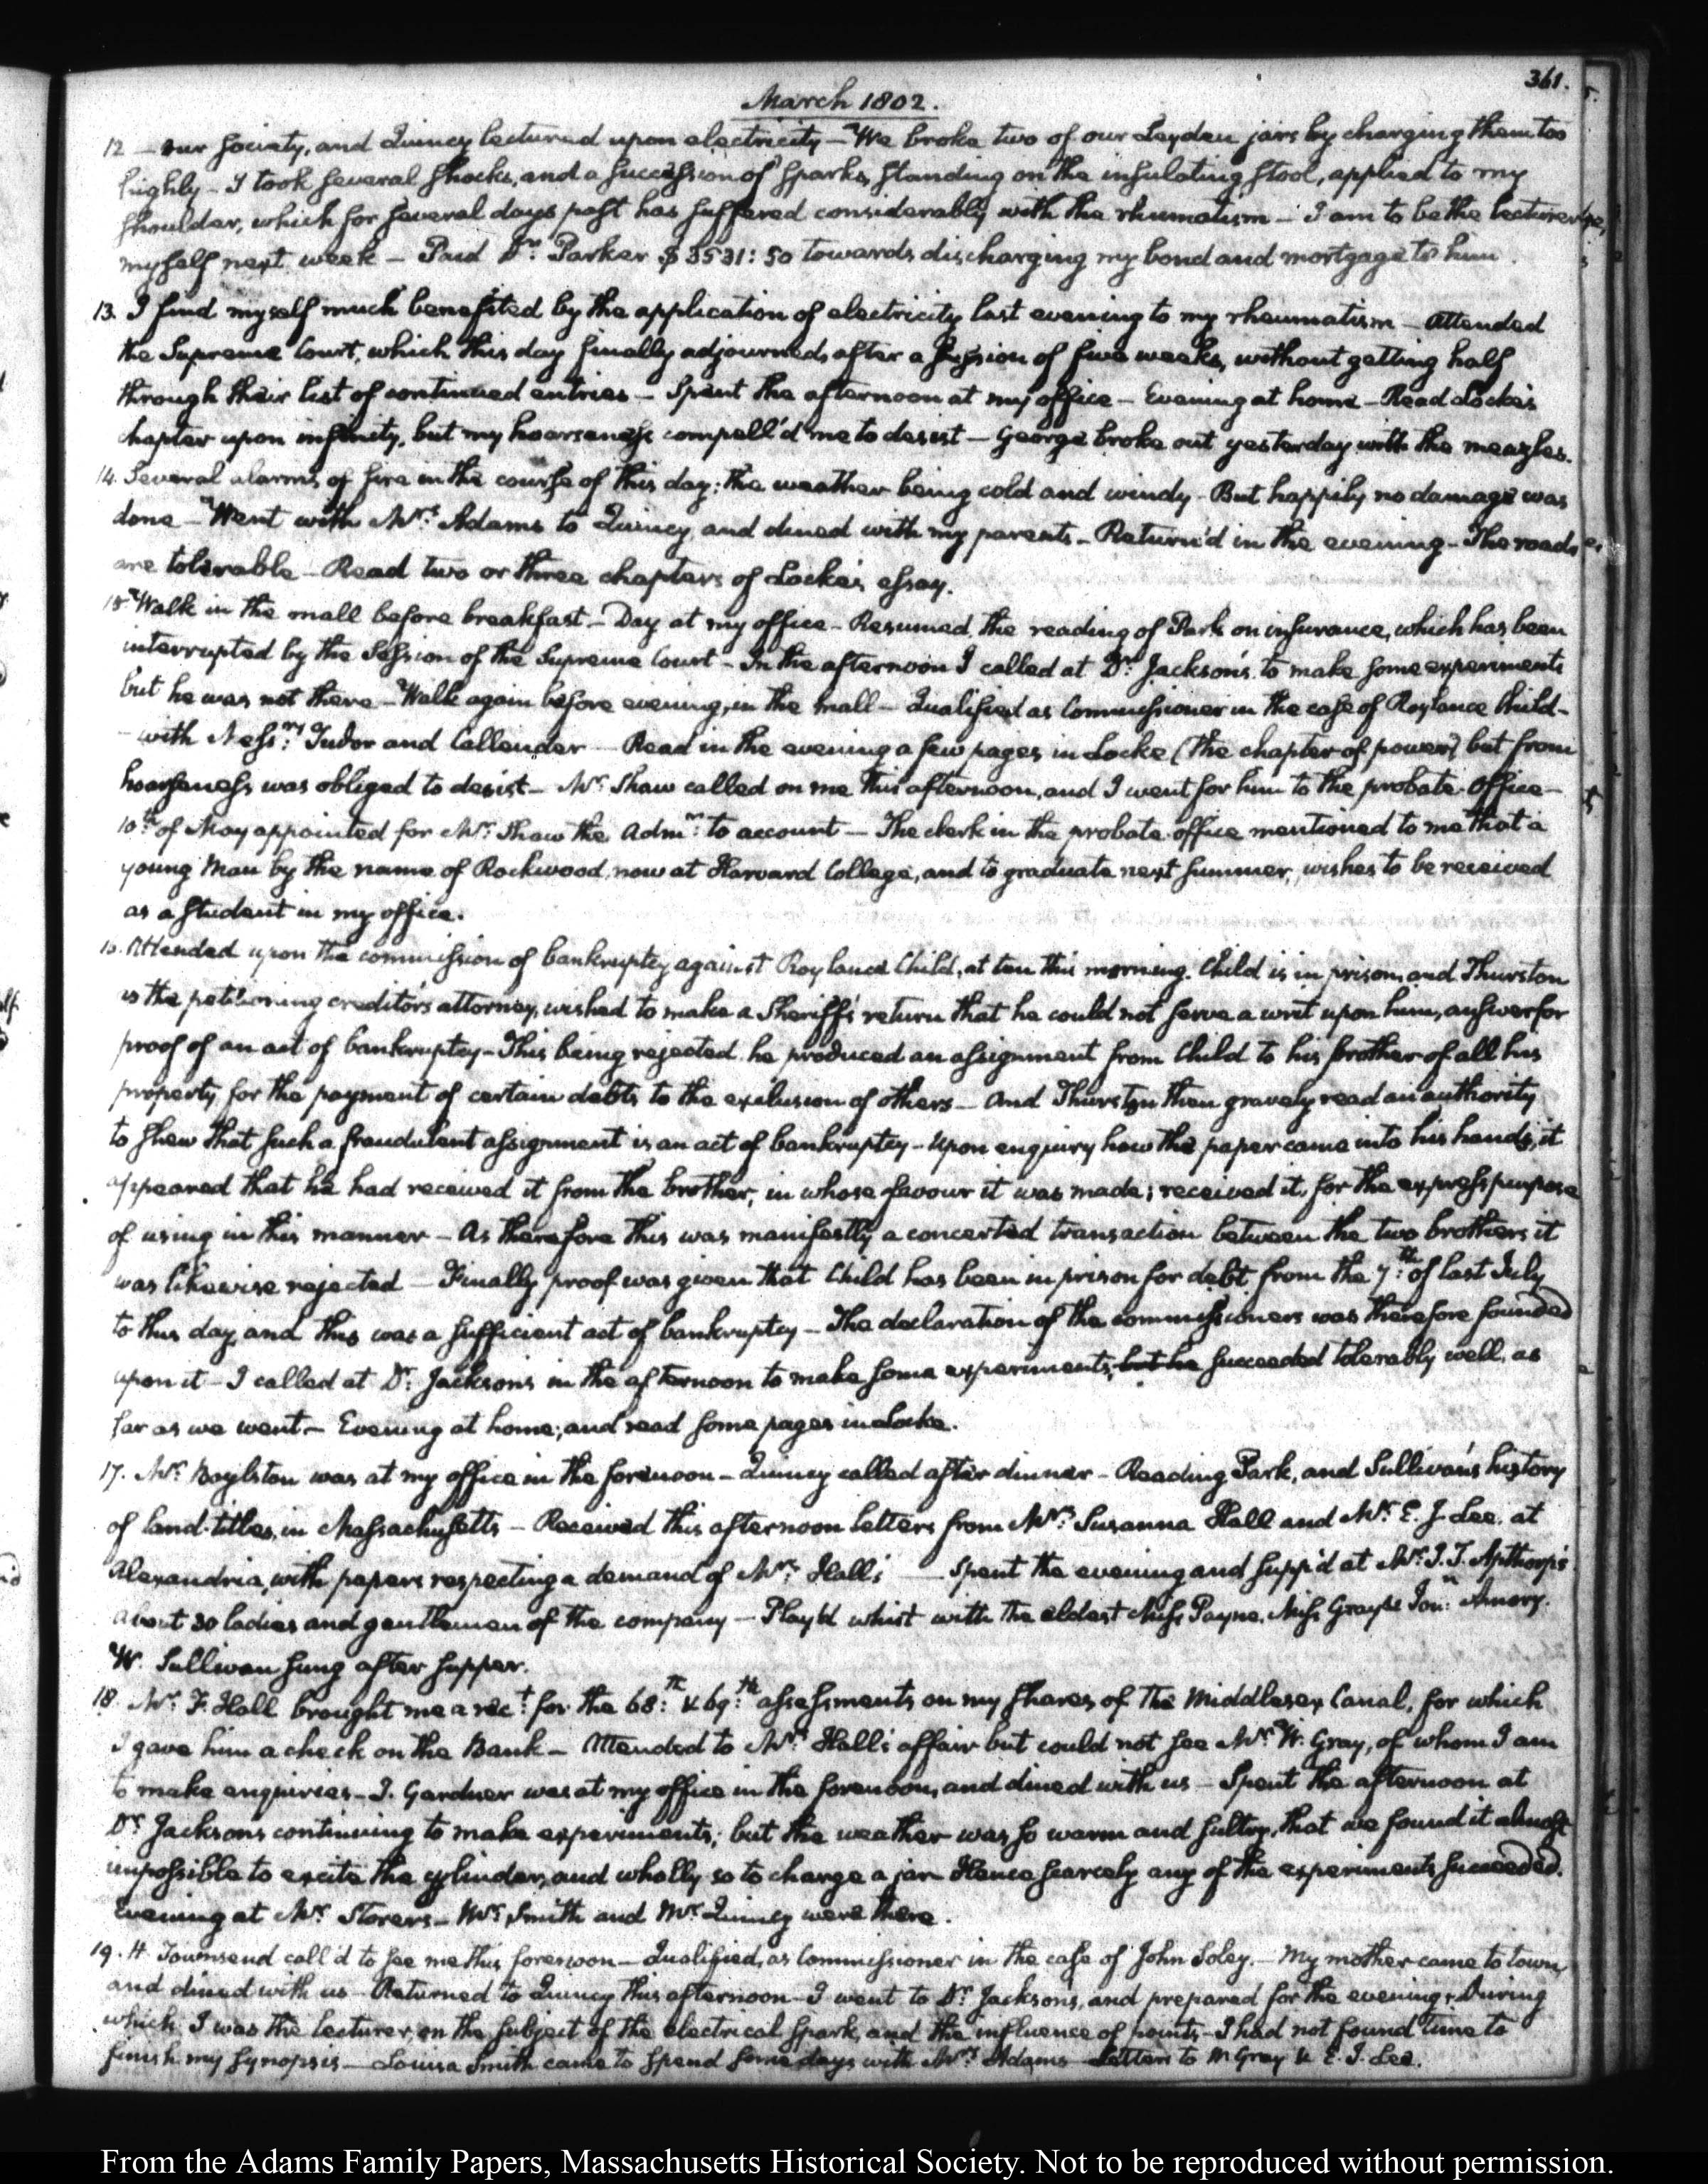 361.
March 1802.
12 — our society, and Quincy lectured upon electricity — We broke two of our Leyden jars by charging them too
highly — I took several shocks, and a succession of sparks, standing on the insulating stool, applied to my
shoulder, which for several days past has suffered considerably with the rhumatism — I am to be the lecturer
myself next week — Paid Dr: Parker $3531:50 towards discharging my bond and mortgage to him.
13. I find myself much benefited by the application of electricity last evening to my rheumatism — Attended
the Supreme Court, which this day finally adjourned, after a session of five weeks, without getting half
through their list of continued entries — Spent the afternoon at my office — Evening at home — Read Locke's
chapter upon infinity, but my hoarseness compell'd me to desist — George broke out yesterday with the meazles.
14. Several alarms of fire in the course of this day: the weather being cold and windy — But happily no damage was
done — Went with Mrs: Adams to Quincy and dined with my parents — Return'd in the evening — The roads
are tolerable — Read two or three chapters of Locke's essay.
15. Walk in the mall before breakfast — Day at my office — Resumed the reading of Park on insurance, which has been
interrupted by the Session of the Supreme Court — In the afternoon I called at Dr: Jackson's to make some experiments
but he was not there — Walk again before evening, in the mall — Qualified as Commissioner in the case of Roylance Child —
— with Messrs: Tudor and Callender — Read in the evening a few pages in Locke (the chapter of power) but from
hoarseness was obliged to desist — Mr: Shaw called on me this afternoon, and I went for him to the probate office —
10th: of May appointed for Mr: Shaw the Admr: to account — The clerk in the probate office mentioned to me that a
young Man by the name of Rockwood, now at Harvard College, and to graduate next summer, wishes to be received
as a student in my office.
16. Attended upon the commission of bankruptcy against Roylance Child, at ten this morning. Child is in prison, and Thurston
is the petitioning creditor's attorney, wished to make a Sheriff's return that he could not serve a writ upon him, answer for
proof of an act of bankruptcy — This being rejected, he produced an assignment from Child to his brother of all his
property, for the payment of certain debts to the exclusion of others — And Thurston then gravely read an authority
to shew that such a fraudulent assignment is an act of bankruptcy — Upon enquiry how the paper came into his hands, it
appeared that he had received it from the brother, in whose favour it was made; received it, for the express purpose
of using in this manner — As therefore this was manifestly a concerted transaction between the two brothers it
was likewise rejected — Finally proof was given that Child has been in prison for debt from the 7th: of last July
to this day, and this was a sufficient act of bankruptcy — The declaration of the commissioners was therefore founded
upon it — I called at Dr: Jackson's in the afternoon to make some experiments, but he succeeded tolerably well, as
far as we went — Evening at home; and read some pages in Locke.
17. Mr: Boylston was at my office in the forenoon — Quincy called after dinner — Reading Park, and Sullivan's history
of land-titles, in Massachusetts — Received this afternoon letters from Mrs: Susanna Hall and Mr: E. J. Lee, at
Alexandria, with papers respecting a demand of Mrs: Hall's — Spent the evening and supp'd at Mr: J. T. Apthorp's
About 30 ladies and gentlemen of the company — Play'd whist with the eldest Miss Payne, Miss Gray & Jonn: Amory.
W. Sullivan sung after supper.
18. Mr: F. Hall brought me a rect: for the 68:th & 69:th assessments on my shares of the Middlesex Canal, for which
I gave him a check on the Bank — Attended to Mrs: Hall's affair but could not see Mr: W. Gray, of whom I am
to make enquiries — J. Gardner was at my office in the forenoon, and dined with us — Spent the afternoon at
Dr: Jacksons continuing to make experiments; but the weather was so warm and sultry, that we found it almost
impossible to excite the cylinder, and wholly so to charge a jar. Hence scarcely any of the experiments succeeded.
Evening at Mr: Storers — Mrs: Smith and Mr: Quincy were there.
19. H. Townsend call'd to see me this forenoon — Qualified, as Commissioner in the case of John Soley. — My mother came to town,
and dined with us — Returned to Quincy this afternoon — I went to Dr: Jacksons, and prepared for the evening; During
which I was the lecturer, on the subject of the electrical spark, and the influence of points — I had not found time to
finish my synopsis — Louisa Smith came to spend some days with Mrs: Adams — Letters to W Gray & E. J. Lee.
From the Adams Family Papers, Massachusetts Historical Society. Not to be reproduced without permission.